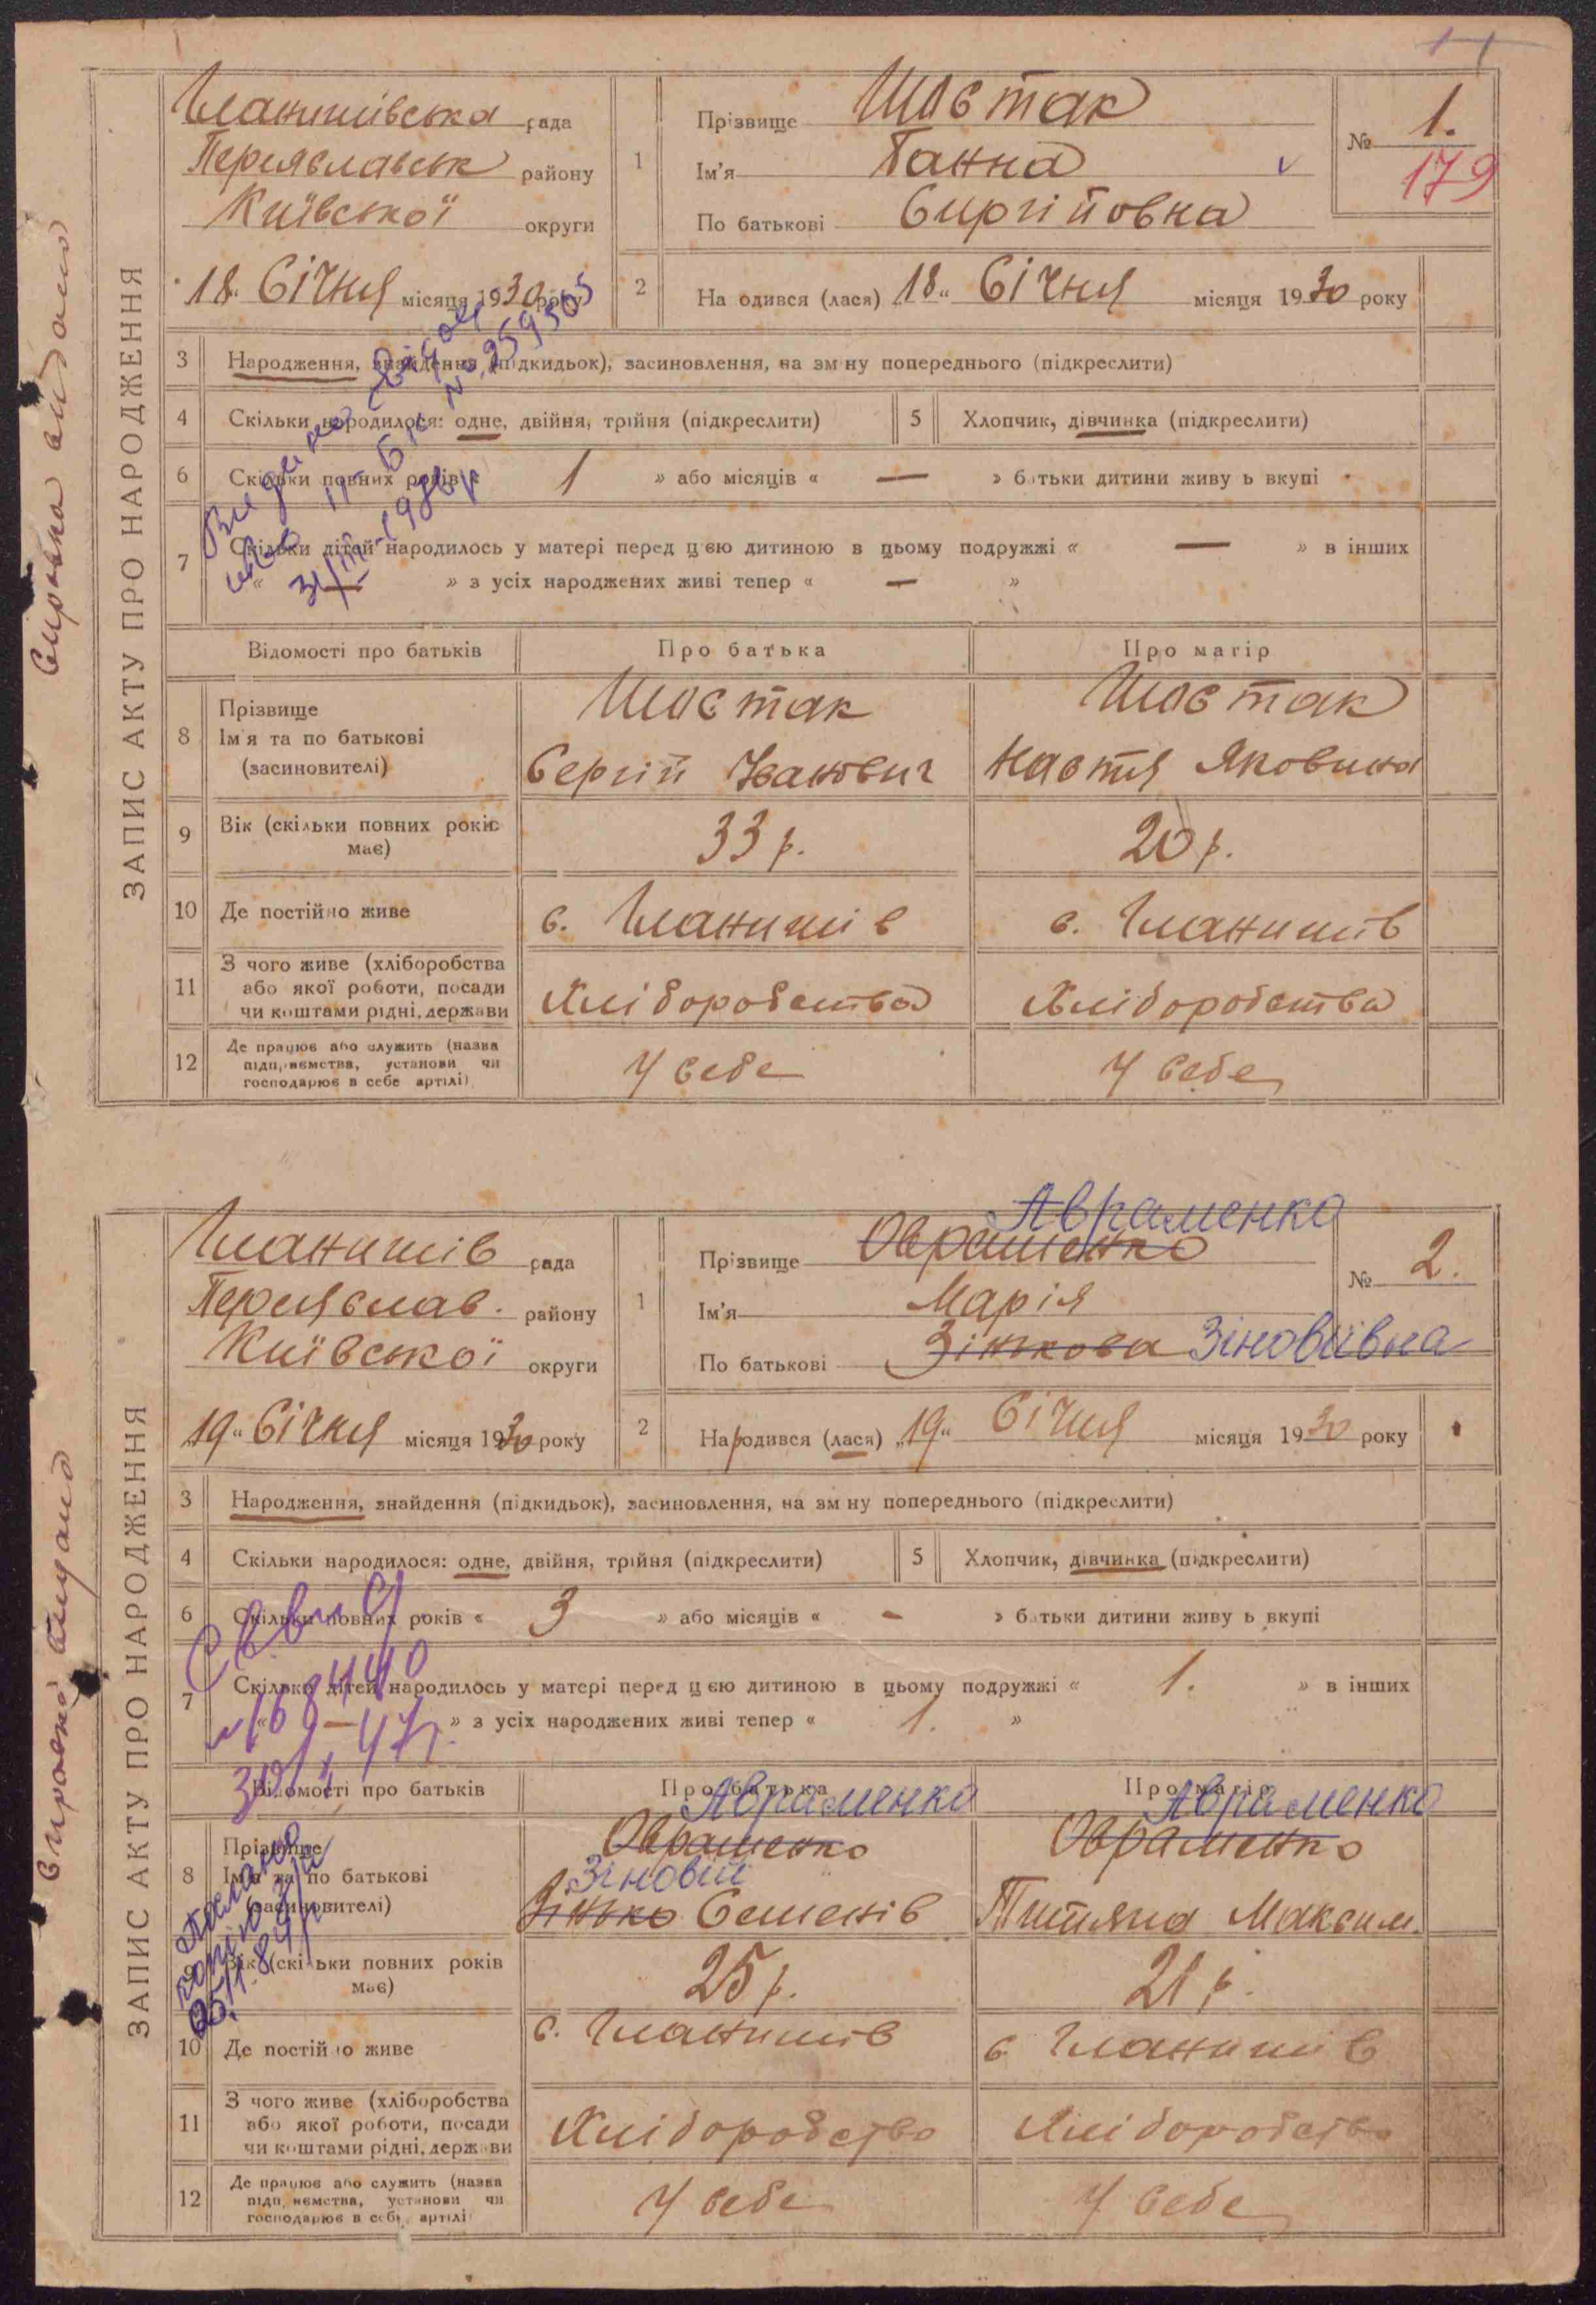 Гланишівська рада
Переяславськ району
Київської округи
18" Січня місяця 1930 року
1 Прізвище Шостак
Ім'я Ганна
По батькові Сиргійовна
№ 1.
179
2 На одився (лася) 18" Січня місяця 1930 року
ЗАПИС АКТУ ПРО НАРОДЖЕННЯ
Справка видано
3 Народження, знайдення (підкидьок), засиновлення, на зм ну попереднього (підкреслити)
4 Скільки народилося: одне, двійня, трійня (підкреслити)
5 Хлопчик, дівчинка (підкреслити)
6 Скільки повних років « 1 » або місяців « — » батьки дитини живу ь вкупі
7 Скільки дітей народилось у матері перед цією дитиною в цьому подружжі « — » в інших
« — » з усіх народжених живі тепер « — »
Відомості про батьків Про батька Про матір
8 Прізвище
Ім'я та по батькові
(засиновителі)
Шостак
Сергій Іванович
Шостак
Настя Яковина
9 Вік (скільки повних років
має)
33 р. 20 р.
10 Де постійно живе с. Гланишів с. Гланишів
11 З чого живе (хліборобства
або якої роботи, посади
чи коштами рідні, держави
Хліборобства Хліборобства
12 Де працює або служить (назва
підприємства, установи чи
господарює в себе артілі)
У себе У себе
Гланишів рада
Переяслав. району
Київської округи
19" Січня місяця 1930 року
1 Прізвище Овраменко Авраменко
Ім'я Марія
По батькові Зінькова Зіновіївна
№ 2.
2 Народився (лася) „19" Січня місяця 1930 року
ЗАПИС АКТУ ПРО НАРОДЖЕННЯ
Справка видано
3 Народження, знайдення (підкидьок), засиновлення, на зм ну попереднього (підкреслити)
4 Скільки народилося: одне, двійня, трійня (підкреслити)
5 Хлопчик, дівчинка (підкреслити)
6 Скільки повних років « 3 » або місяців « - » батьки дитини живу ь вкупі
7 Скільки дітей народилось у матері перед цією дитиною в цьому подружжі « 1. » в інших
« — » з усіх народжених живі тепер « 1. »
Відомості про батьків Про батька Про матір
8 Прізвище
Ім'я та по батькові
(засиновителі)
Авраменко
Овраменко
Зіновій
Зінько Семенів
Авраменко
Овраменко
Титяна Максим.
9 Вік (скільки повних років
має)
25 р. 21 р.
10 Де постійно живе с. Гланишів с Гланишів
11 З чого живе (хліборобства
або якої роботи, посади
чи коштами рідні, держави
Хліборобство Хліборобство
12 Де працює або служить (назва
підприємства, установи чи
господарює в себе артілі
У себе У себе